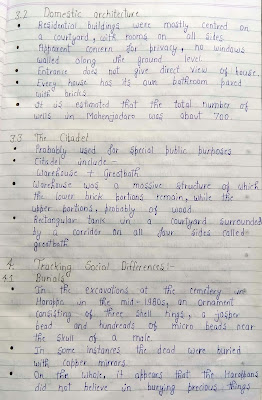 3.2 Domestic architecture
• Residential buildings were mostly centred on
a courtyard, with rooms on all sides.
• Apparent concern for privacy, no windows
walled along the ground level.
• Entrance does not give direct view of house.
• Every house has its own bathroom paved
with bricks.
• It is estimated that the total number of
wells in Mohenjodaro was about 700.
3.3 The Citadel
• Probably used for special public purposes
• Citadel include -
Warehouse + Greatbath
• Warehouse was a massive structure of which
the lower brick portions remain, while the
upper portions, probably of wood
• Rectangular tank in a courtyard surrounded
by a corridor on all four sides called
greatbath
4. Tracking Social Differences:
4.1 Burials
• In the excavations at the cemetery in
Harappa in the mid-1980s, an ornament
consisting of three shell rings, a jasper
bead and hundreads of micro beads near
the skull of a male.
• In some instances the dead were buried
with copper mirrors.
• On the whole, it appears that the Harappans
did not believe in burying precious things